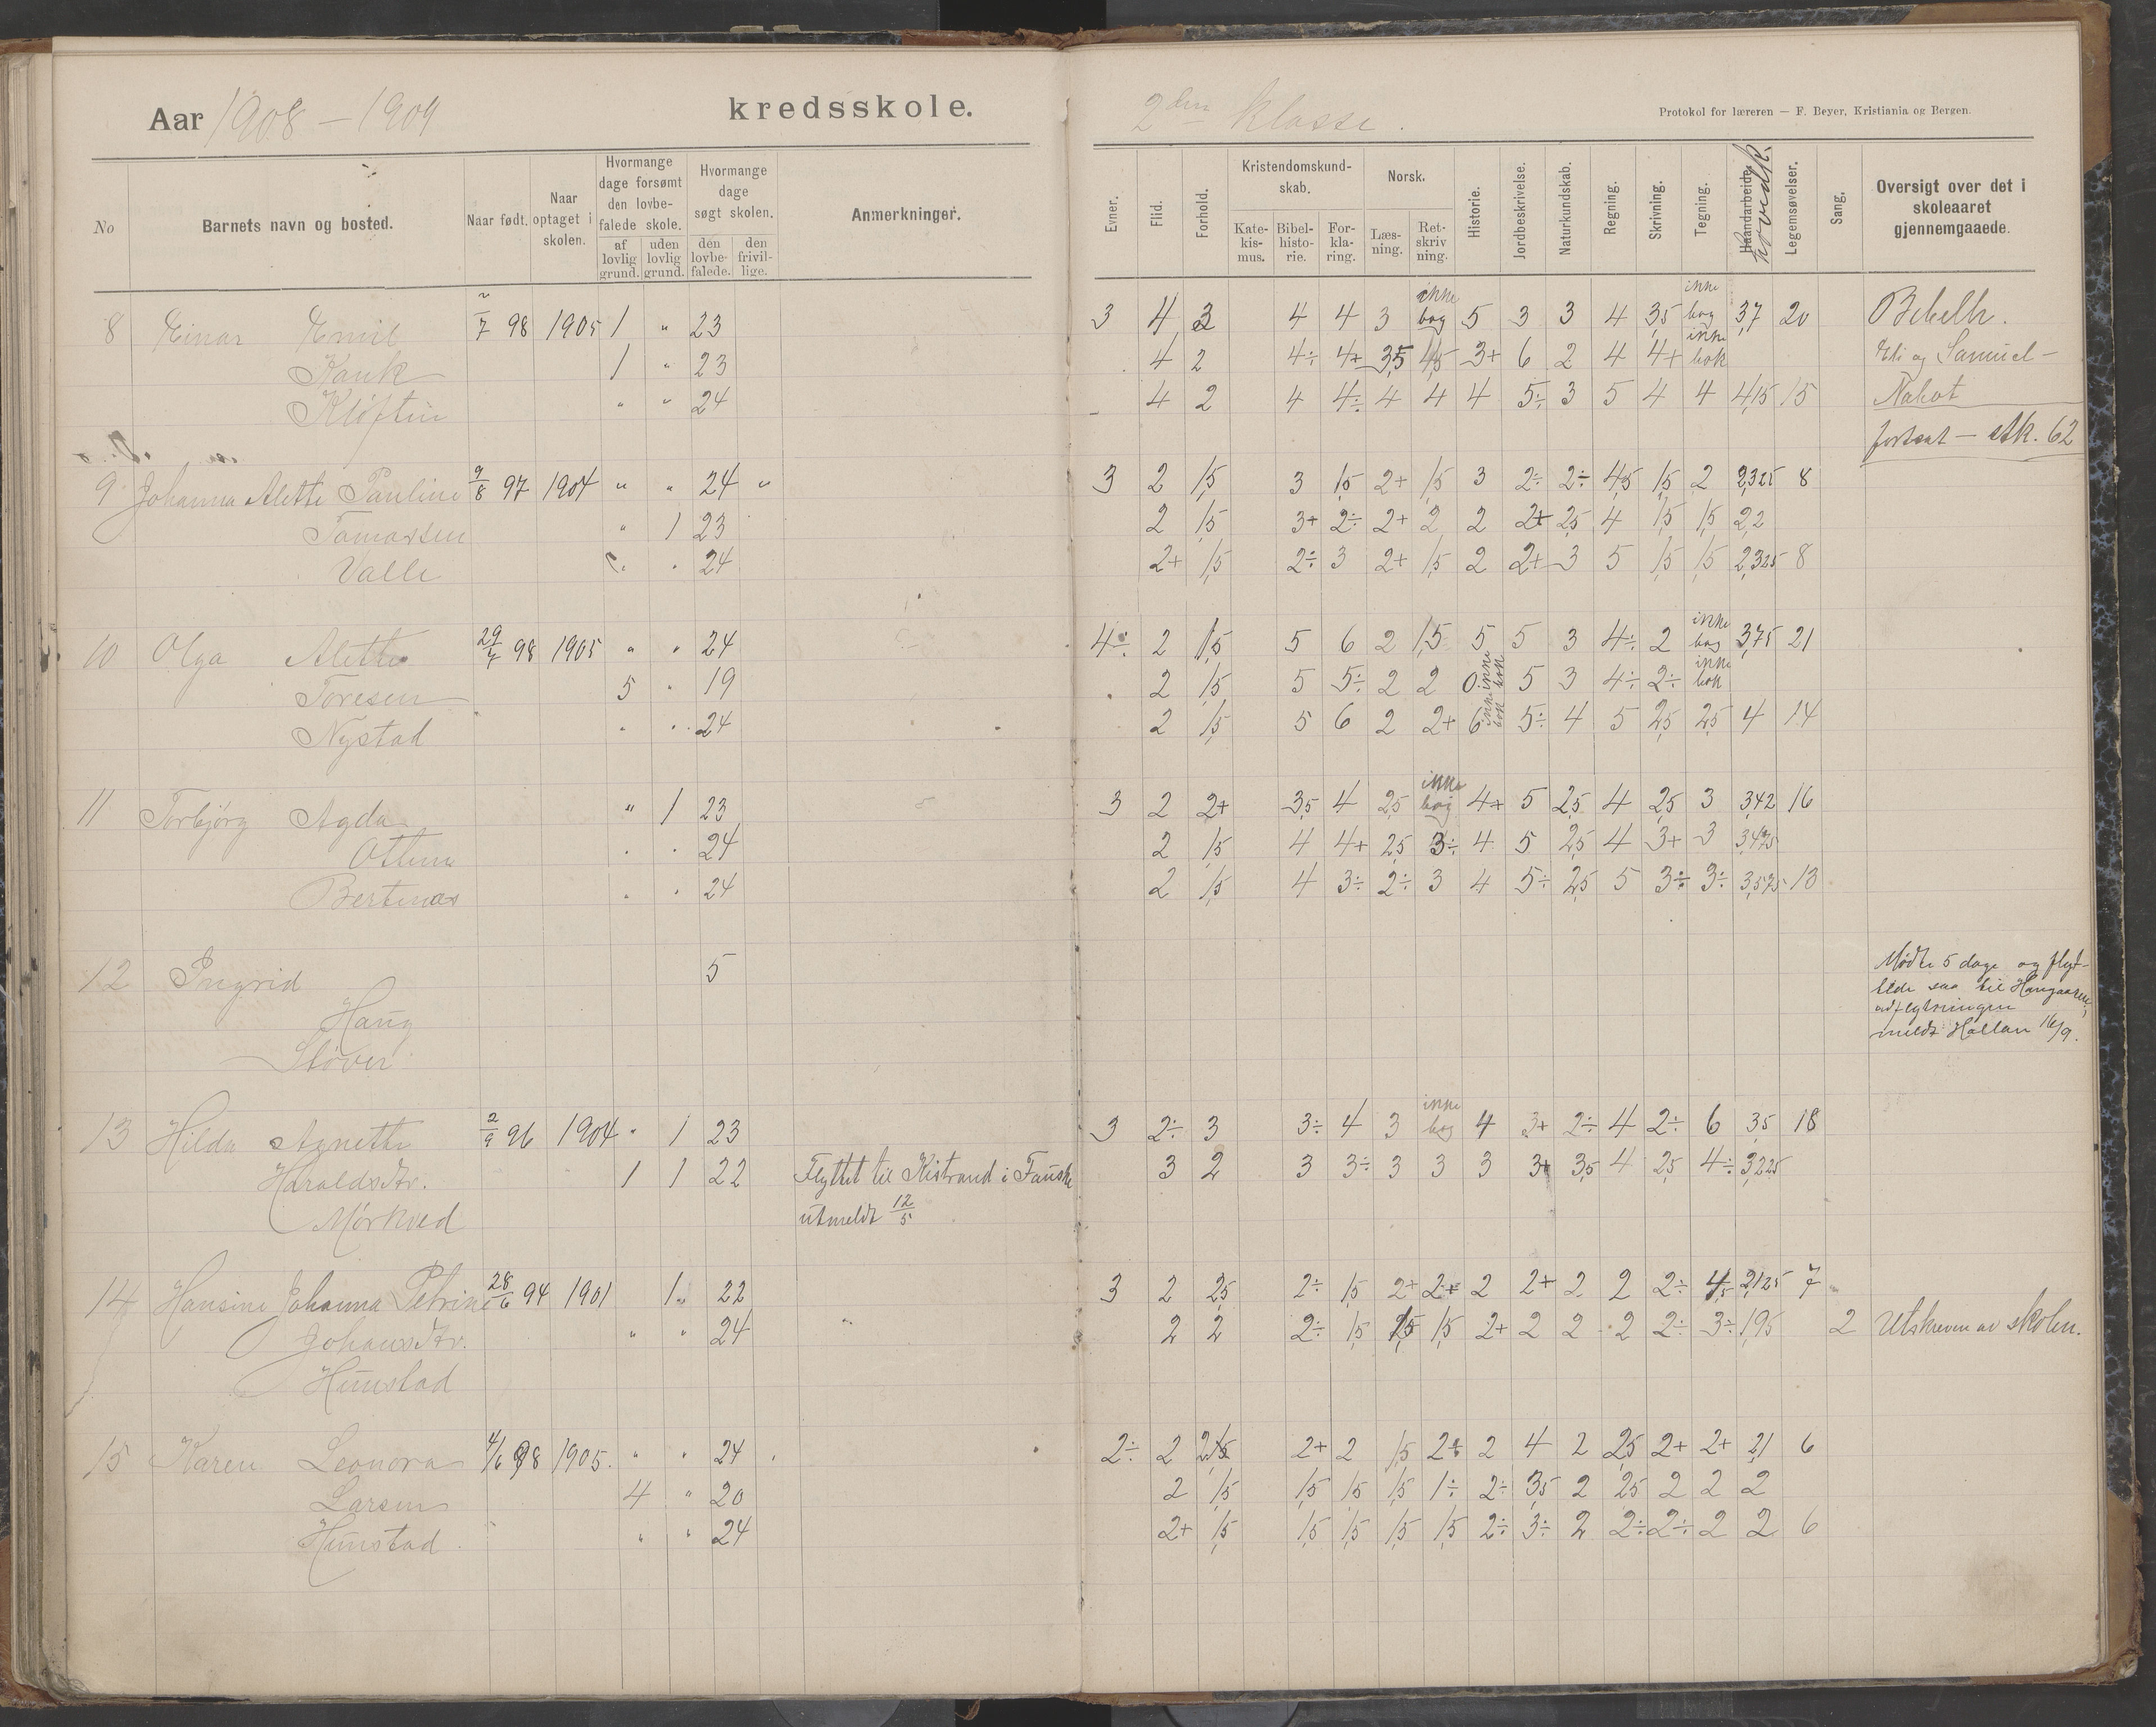 Aar 1908 – 1909 kredsskole.
2den klasse.
Protokol for læreren — F. Beyer, Kristiania og Bergen.
No
Barnets navn og bosted.
Naar født.
Naar optaget i skolen.
Hvormange dage forsømt den lovbefalede skole.
af lovlig grund.
uden lovlig grund.
Hvormange dage søgt skolen.
den lovbefalede.
den frivillige.
Anmerkninger.
Evner.
Flid.
Forhold.
Kristendomskundskab.
Katekismus.
Bibelhistorie.
Forklaring.
Norsk.
Læsning.
Retskrivning.
Historie.
Jordbeskrivelse.
Naturkundskab.
Regning.
Skrivning.
Tegning.
Haandarbeide.
hovedk.
Legemsøvelser.
Sang.
Oversigt over det i skoleaaret gjennemgaaede.
8 Einar Emil 2/7 98 1905 1 " 23 3 4 3 4 4 3 ikke bog 5 3 3 4 3,5 ikke bog 3,7 20 Bibelh.
Kank 1 " 23 4 2 4÷ 4+ 3,5 4,5 3+ 6 2 4 4+ ikke bok Eli og Samuel –
Kløftin " " 24 4 2 4 4÷ 4 4 4 5÷ 3 5 4 4 4,15 15 Nabot
fortsat – stk. 62
9 Johanna Alette Pauline 9/8 97 1904 " " 24 " 3 2 1,5 3 1,5 2+ 1,5 3 2÷ 2÷ 4,5 1,5 2 2,325 8
Tomassen " 1 23 2 1,5 3+ 2÷ 2+ 2 2 2+ 2,5 4 1,5 1,5 2,2
Valle " 24 2+ 1,5 2÷ 3 2+ 1,5 2 2+ 3 5 1,5 1,5 2,325 8
10 Olga Alette 29/7 98 1905 " " 24 4÷ 2 1,5 5 6 2 1,5 5 5 3 4÷ 2 ikke bog 3,75 21
Toresen 5 " 19 2 1,5 5 5÷ 2 2 0 ikke bok 5 3 4÷ 2÷ ikke bok
Nystad " " 24 2 1,5 5 6 2 2+ 6 ikke bok 5÷ 4 5 2,5 2,5 4 14
11 Torbjørg Agda " 1 23 3 2 2+ 3,5 4 2,5 ikke bog 4+ 5 2,5 4 2,5 3 3,42 16
" " 24 2 1,5 4 4+ 2,5 3÷ 4 5 2,5 4 3+ 3 3,475
Bertnas " " 24 2 1,5 4 3÷ 2÷ 3 4 5÷ 2,5 5 3÷ 3÷ 3,575 13
12 Ingrid 5
Haug
Støver
Mødte 5 dage og flyt-
tede saa til Haugaaren,
udflytningen
meldt Hallan 16/9.
13 Hilda Agnethe 2/9 96 1904 " 1 23 3 2÷ 3 3÷ 4 3 ikke bog 4 3+ 2÷ 4 2÷ 6 3,5 18
Haraldsdtr. 1 1 22 Flyttet til Kistrand i Fauske 3 2 3 3÷ 3 3 3 3+ 3,5 4 2,5 4÷ 3,225
Mørkved utmeldt 12/5
14 Hansine Johanna Petrine 28/6 94 1901 1 " 22 3 2 2,5 2÷ 1,5 2+ 2+ 2 2+ 2 2 2÷ 4,5 2,125 7
Johansdtr. " " 24 2 2 2÷ 1,5 1,5 1,5 2+ 2 2 2 2÷ 3÷ 1,95 2 Utskreven av skolen.
Hunstad
15 Karen Leonora 4/6 98 1905. " " 24 2÷ 2 2,5 2+ 2 1,5 2÷ 2 4 2 2,5 2+ 2+ 2,1 6
Larsen 4 " 20 2 1,5 1,5 1,5 1,5 1÷ 2÷ 3,5 2 2,5 2 2 2
Hunstad " " 24 2+ 1,5 1,5 1,5 1,5 1,5 2÷ 3÷ 2 2÷ 2÷ 2 2 6